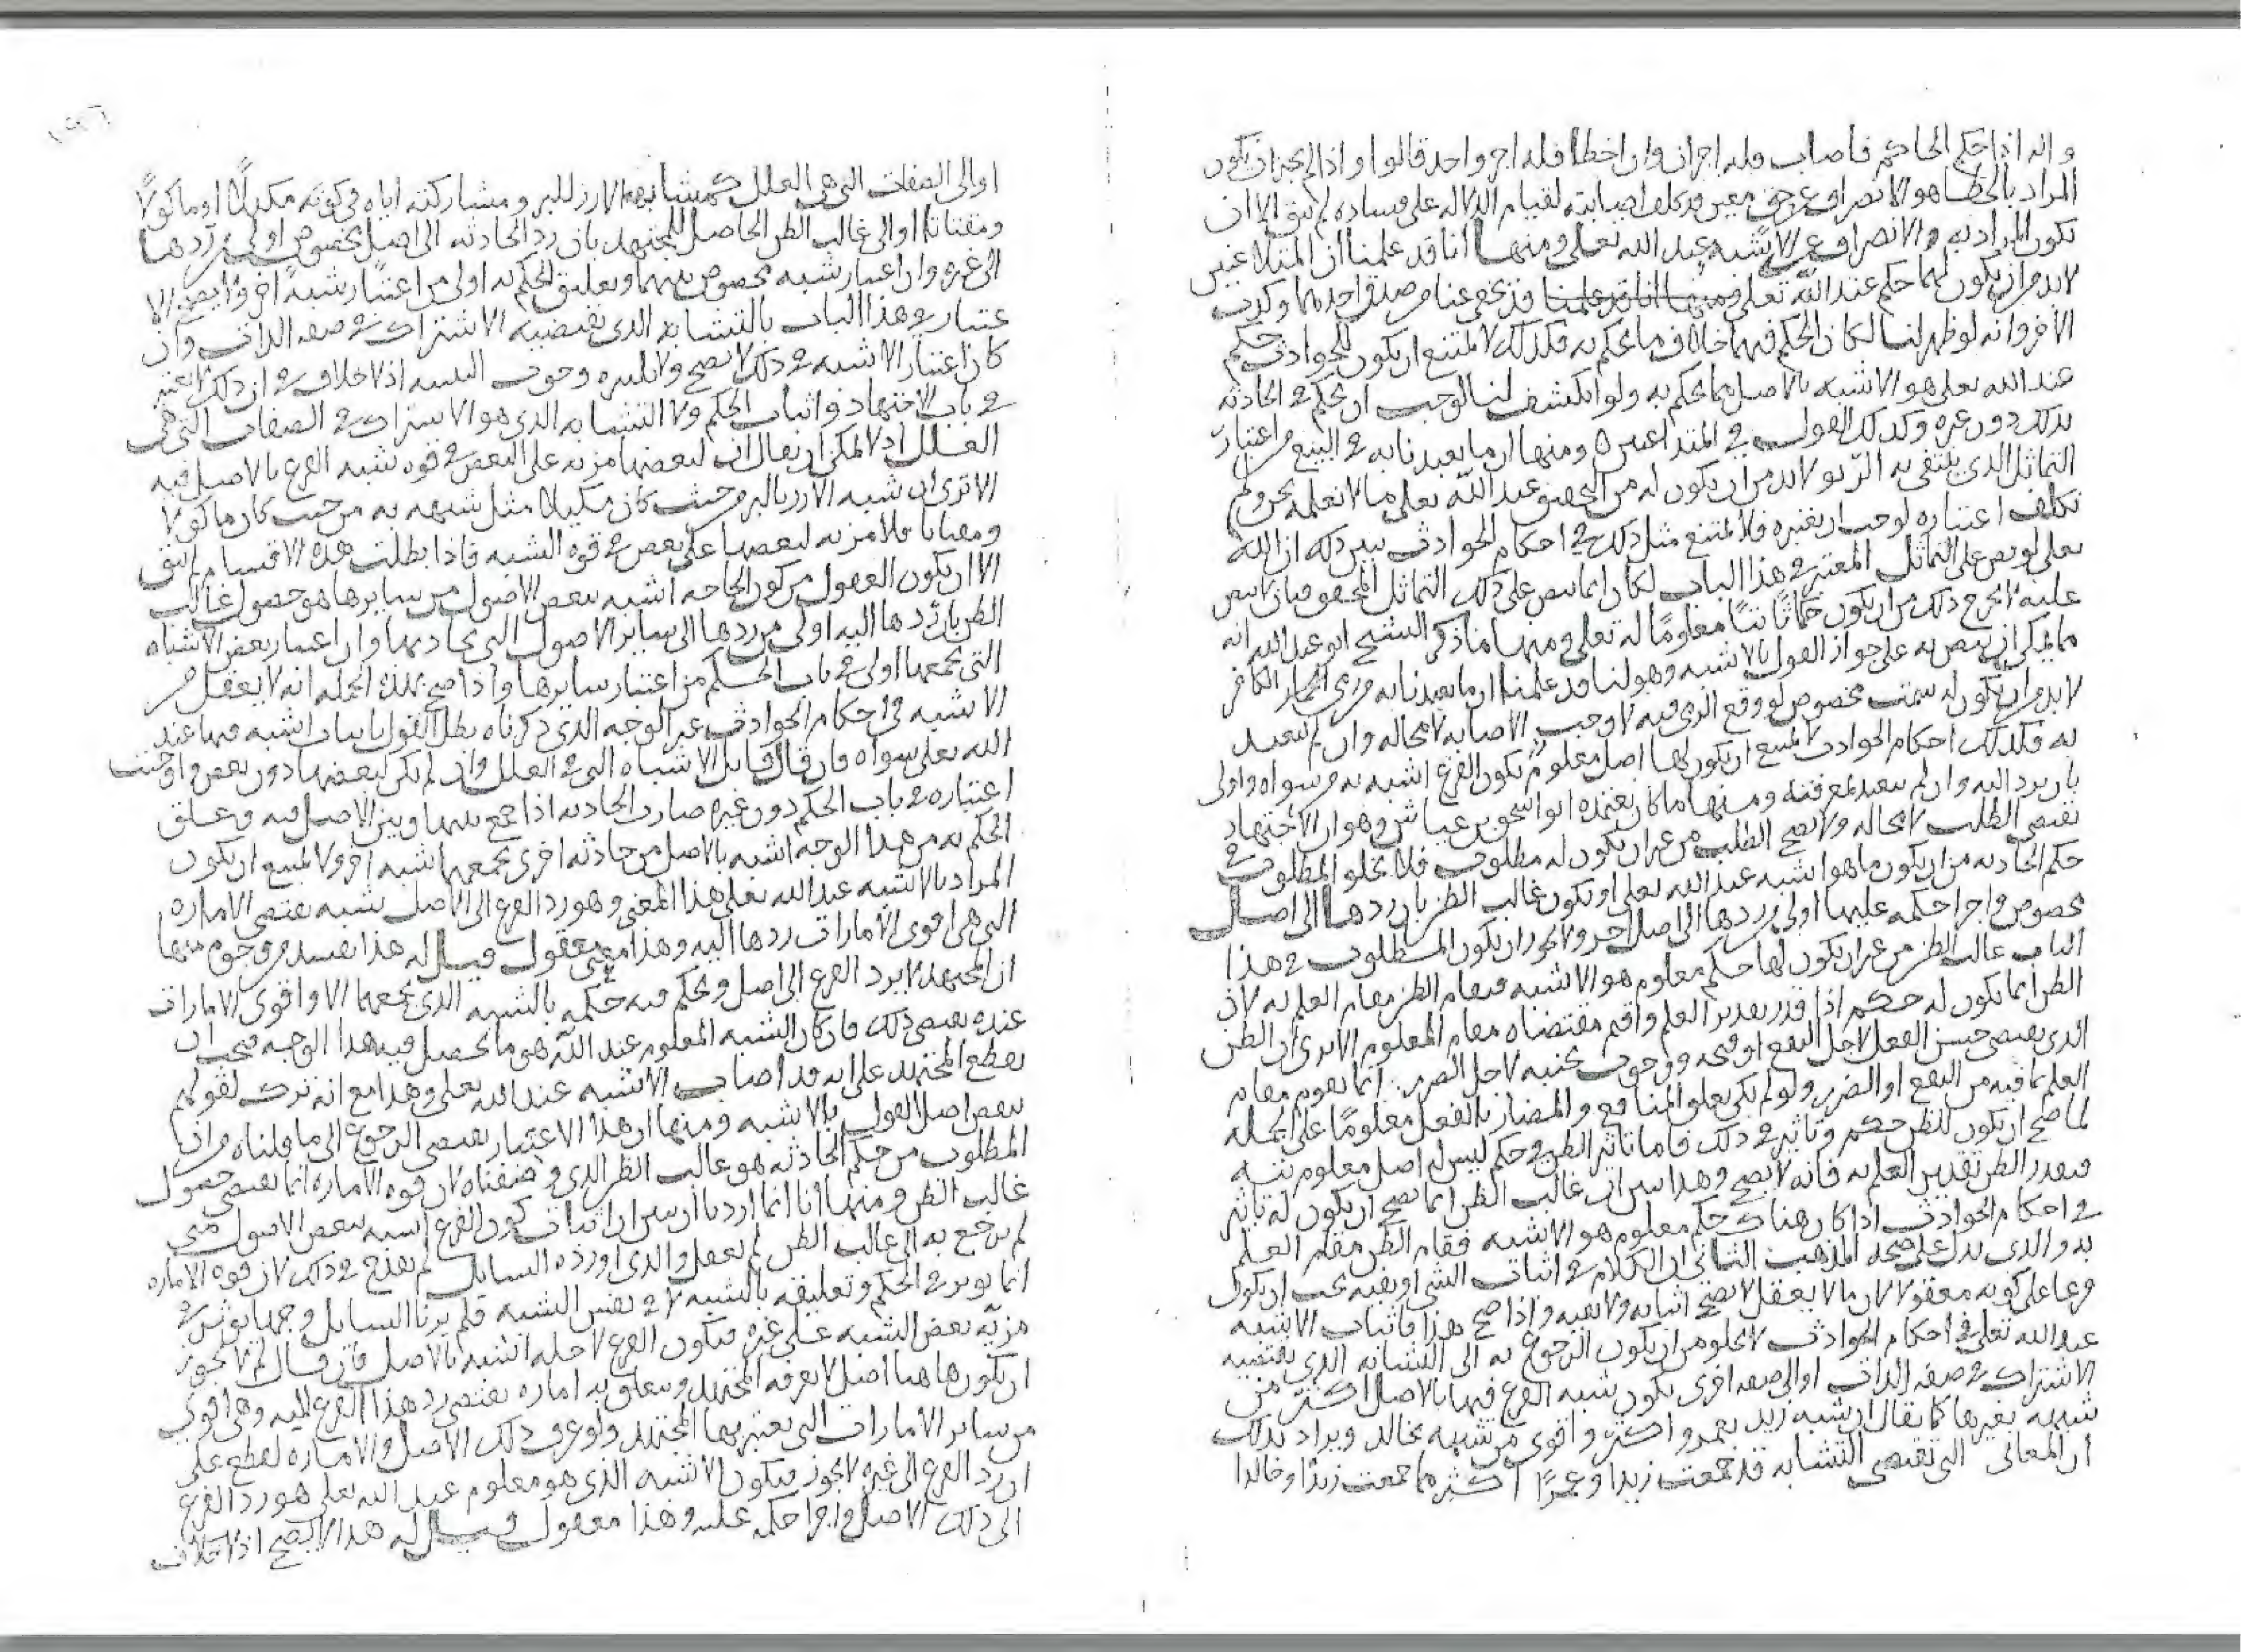 وانه اذا حكم الحاكم فاصاب فله اجران وان اخطا فله اجر واحد قالوا واذا لم يجز ان يكون
المراد بالخطا هو الانصراف عن حق معين قد كلف اصابته لقيام الدلاله على فساده لم يبق الا ان
يكون المراد به والانصراف عن الاشبه عند الله تعلى ومنها انا قد علمنا ان المتلاعنين
لابد من ان يكون لهما حكم عند الله تعلى قد يخفى عنا من صدق احدهما وكذب
الاخر وانه لو ظهر لنا لكان الحكم فيهما خلاف ما يحكم به فكذلك لا يمتنع ان يكون للحوادث حكم
عند الله تعلى هو الاشبه بالاصل مما يحكم به ولو انكشف لنا لوجب ان يحكم في الحادثه
بذلك دون غيره وكذلك القول في المتداعيين ومنها ان ما تعبدنا به في البيع من اعتبار
التماثل الذي ينتفى به الربو لابد من ان يكون له من التحقيق عند الله تعلى ما لا نعلمه نحن ولم
نكلف اعتباره لوجب ان يعتبره فلا يمتنع مثل ذلك في احكام الحوادث يبين ذلك ان الله
تعلى لو نص على التماثل المعتبر في هذا الباب لكان انما ينص على ذلك التماثل المحقق فبان لا ينص
عليه لا يخرج ذلك من ان يكون معلوما له تعلى ومنها ما ذكر الشيخ ابو عبد الله انه
مما يمكن ان ينص به على جواز القول بالاشبه وهو اننا قد علمنا ان ما تعبدنا به من رمي الكافر
لابد من ان يكون له سمت مخصوص لو وقع الرمي فيه لاوجب الاصابه لا محاله وان لم نتعبد
به فكذلك احكام الحوادث لا يمتنع ان يكون لها اصل معلوم يكون الفرع اشبه به من سواه واولى
بان يرد اليه وان لم نتعبد بمعرفته ومنها ما كان يعتمده ابو اسحق بن عياش وهو ان الاجتهاد
يقتضي الطلب لا محاله ولا يصح الطلب من غير ان يكون له مطلوب فلا يخلو المطلوب في
حكم الحادثه من ان يكون ما هو اشبه عند الله تعلى او يكون غالب الظن بان ردها الى اصل
مخصوص واجرا حكمه عليها اولى من ردها الى اصل اخر ولا يجوز ان يكون المطلوب في هذا
الباب غالب الظن من غير ان يكون لها حكم معلوم هو الاشبه فيقام الظن مقام العلم به لان
الظن انما يكون له حكم اذا قدر تقدير العلم واقيم مقتضاه مقام المعلوم الا ترى ان الظن
الذي يقتضي حسن الفعل لاجل النفع او قبحه ووجوب تجنبه لاجل الضرر انما يقوم مقام
العلم بما فيه من النفع او الضرر ولو لم يكن تعلق المنافع والمضار بالفعل معلوما على الجمله
لما صح ان يكون للظن حكم وتاثير في ذلك فاما تاثير الظن في حكم ليس له اصل معلوم
فيقدر الظن تقدير العلم به فانه لا يصح وهذا يبين ان غالب الظن انما يصح ان يكون له تاثير
في احكام الحوادث اذا كان هناك حكم معلوم هو الاشبه فقام الظن مقام العلم
به والذي يدل على صحه المذهب الثاني ان الكلام في اثبات الشي او نفيه يجب ان يكون
فرعا على كونه معقولا لان ما لا يعقل لا يصح اثباته ولا نفيه واذا صح هذا فاثبات الاشبه
عند الله تعلى في احكام الحوادث لا يخلو من ان يكون الرجوع به الى التشابه الذي يقتضيه
الاشتراك في صفه الذات او الى صفه اخرى يكون شبه الفرع فيها بالاصل اكثر من
شبهه بغيرها كما يقال ان شبه زيد بعمرو اكثر واقوى من شبهه بخالد ويراد بذلك
ان المعاني التي تقتضي التشابه قد جمعت زيدا وعمرًا اكثر مما جمعت زيدا وخالدا
او الى الصفات التي هي العلل كمشابهة الارز للبر ومشاركته اياه في كونه مكيلا او ماكولا
ومقتاتا او الى غالب الظن الحاصل للمجتهد بان رد الحادثه الى اصل مخصوص اولى من ردها
الى غيره وان اعتبار شبه مخصوص بينهما وتعليق الحكم به اولى من اعتبار شبه اخر ولا يصح الا
عتبار في هذا الباب بالتشابه الذي يقتضيه الاشتراك في صفه الذات وان
كان اعتبار الاشبه في ذلك لا يصح اذ لا خلاف في ان ذلك لا يعتبر
في باب الاجتهاد واثبات الحكم ولا التشابه الذي هو الاشتراك في الصفات التي هي
العلل اذ لا يمكن ان يقال ان لبعضها مزيه على البعض في قوه شبه الفرع بالاصل فيه
الا ترى ان شبه الارز بالبر من حيث كان مكيلا مثل شبهه به من حيث كان ماكولا
ومقتاتا فلا مزيه لبعضها على بعض في قوه الشبه فاذا بطلت هذه الاقسام لم يبق
الا ان يكون المعقول من كون الحادثه اشبه ببعض الاصول من سايرها هو حصول غالب
الظن بان ردها اليه اولى من ردها الى ساير الاصول التي تجاذبها وان اعتبار بعض الاشباه
التي تجمعها اولى في باب الحكم من اعتبار سايرها واذا صح بهذه الجمله انه لا يعقل من
الاشبه في احكام الحوادث غير الوجه الذي ذكرناه بطل القول باثبات اشبه فيها عند
الله تعلى سواه فان قال قايل الاشباه التي في العلل وان لم يكن لبعضها دون بعض
اعتباره في باب الحكم دون غيره صارت الحادثه اذا جمع بينها وبين الاصل فيه وعلق
الحكم به من هذا الوجه اشبه بالاصل من حادثه اخرى يجمعهما شبه اخر ولا يمتنع ان يكون
المراد بالاشبه عند الله تعلى هذا المعنى وهو رد الفرع الى الاصل بشبه يقتضي الاماره
التي هي اقوى الامارات ردها اليه وهذا معنى معقول قيل له هذا يفسد من وجوه منها
ان المجتهد لا يرد الفرع الى اصل ويحكم فيه بحكمه بالشبه الذي يجمعهما الا واقوى الامارات
عنده يقتضي ذلك فان كان الشبه المعلوم عند الله هو ما يحصل فيه هذا الوجه فيجب ان
يقطع المجتهد على انه قد اصاب الاشبه عند الله تعلى وهذا مع انه ترك لقولكم
ينقض اصل القول بالاشبه ومنها ان هذا الاعتبار يقتضي الرجوع الى ما قلناه من ان
المطلوب من حكم الحادثه هو غالب الظن الذي وصفناه لان قوه الاماره انما يقتضي حصول
غالب الظن ومنها انا انما اردنا ان نبين ان اثبات كون الفرع اشبه ببعض الاصول متى
لم يرجع به الى غالب الظن لم يعقل والذي اورده السايل لم يقدح في ذلك لان قوه الاماره
انما يوثر في الحكم وتعليقه بالشبه لا في نفس الشبه فلم يرنا السايل وجها يوثر في
مزيه بعض الشبه على غيره فيكون الفرع لاجله اشبه بالاصل فان قال لم لا يجوز
ان يكون هاهنا اصل لا يعرفه المجتهد ويتعلق به اماره يقتضي رد هذا الفرع اليه وهي اقوى
من ساير الامارات التي يعتبر بها المجتهد ولو عرف ذلك الاصل والاماره لقطع على
ان رد الفرع الى غيره لا يجوز فيكون الاشبه الذي هو معلوم عند الله تعلى هو رد الفرع
الى ذلك الاصل واجرا حكمه عليه وهذا معقول قيل له هذا لا يصح اذ لا خلاف